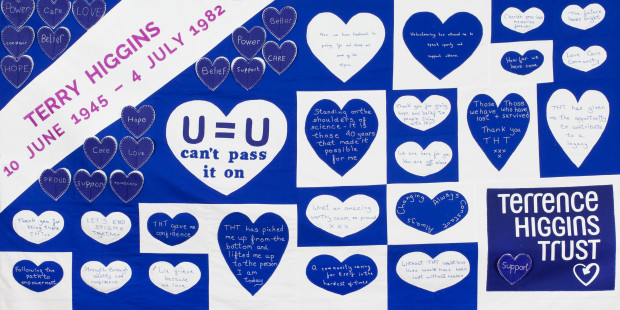 Power
Care
LOVE
Compassion
Belief
HOPE
TERRY HIGGINS
10 JUNE 1945 – 4 JULY 1982
Belief
Power
CARE
Belief
Support
Hope
Care
Love
PROUD
Support
U=U
can't pass
it on
Standing on the
shoulders of
science - it is
those 40 years
that made it
possible
for me
Thank you for giving
hope and safety to
people living
with HIV
We are here for you
Those
we have
lost +
Those
who have
survived
Thank you
THT
xxx
THT has given
me the opportunity
to contribute
to a
legacy
Volunteering has allowed me to
speak openly and
support others.
How far we
have come
Love Care
Community
Thank you for
being there
LET'S END
STIGMA
Together
THT gave me
confidence
Following the
path to
empowerment
We grieve
because
we love
THT has picked
me up from the
bottom and
lifted me up
to the person
I am
Today
What an amazing
A community caring
for itself in the
hardest of times
Always Changing
Always Constant
Without THT
lives would have been
lost without reason
TERRENCE
HIGGINS
TRUST
Support